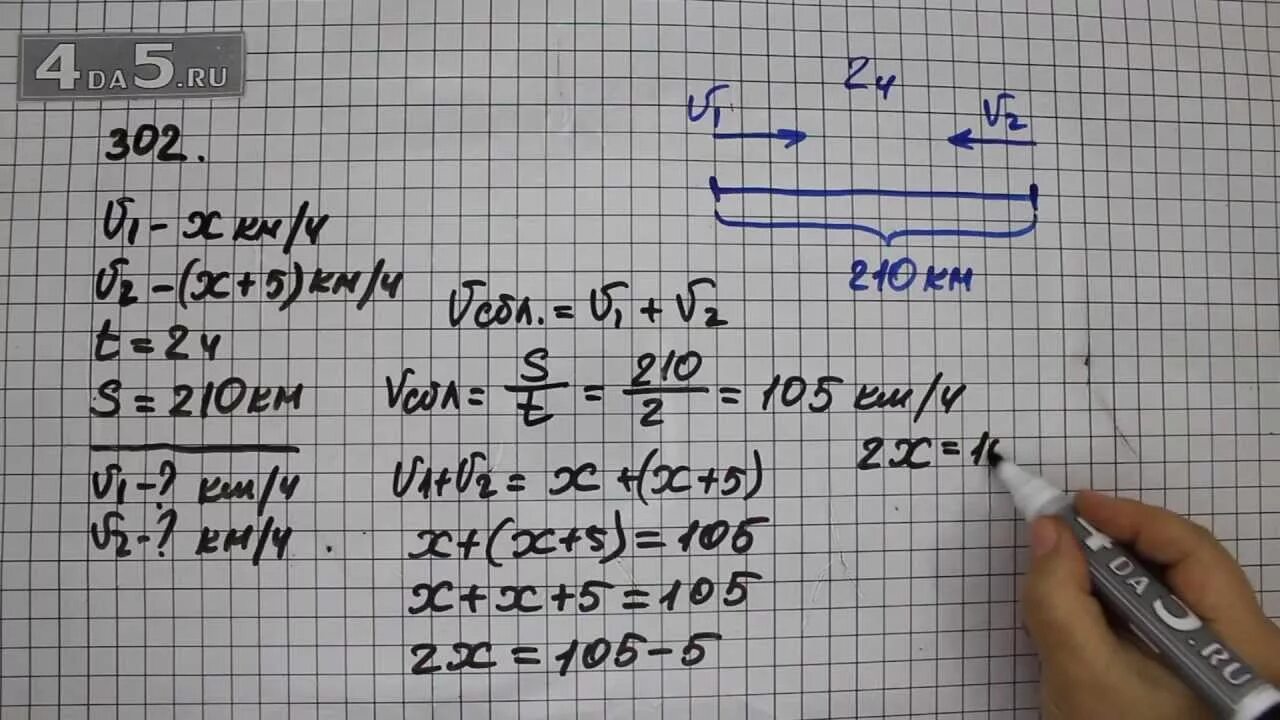 4DA5.RU
302.
V₁ - x км/ч
V₂ - (x+5) км/ч
t = 2ч
S = 210 км
V₁ - ? км/ч
V₂ - ? км/ч.
2ч
V₁ V₂
210 км
Vсбл. = V₁ + V₂
Vсбл = S/t = 210/2 = 105 км/ч
V₁+V₂ = x + (x+5)
x+(x+5) = 105
x+x+5 = 105
2x = 105-5
2x = 10
4DA5.RU